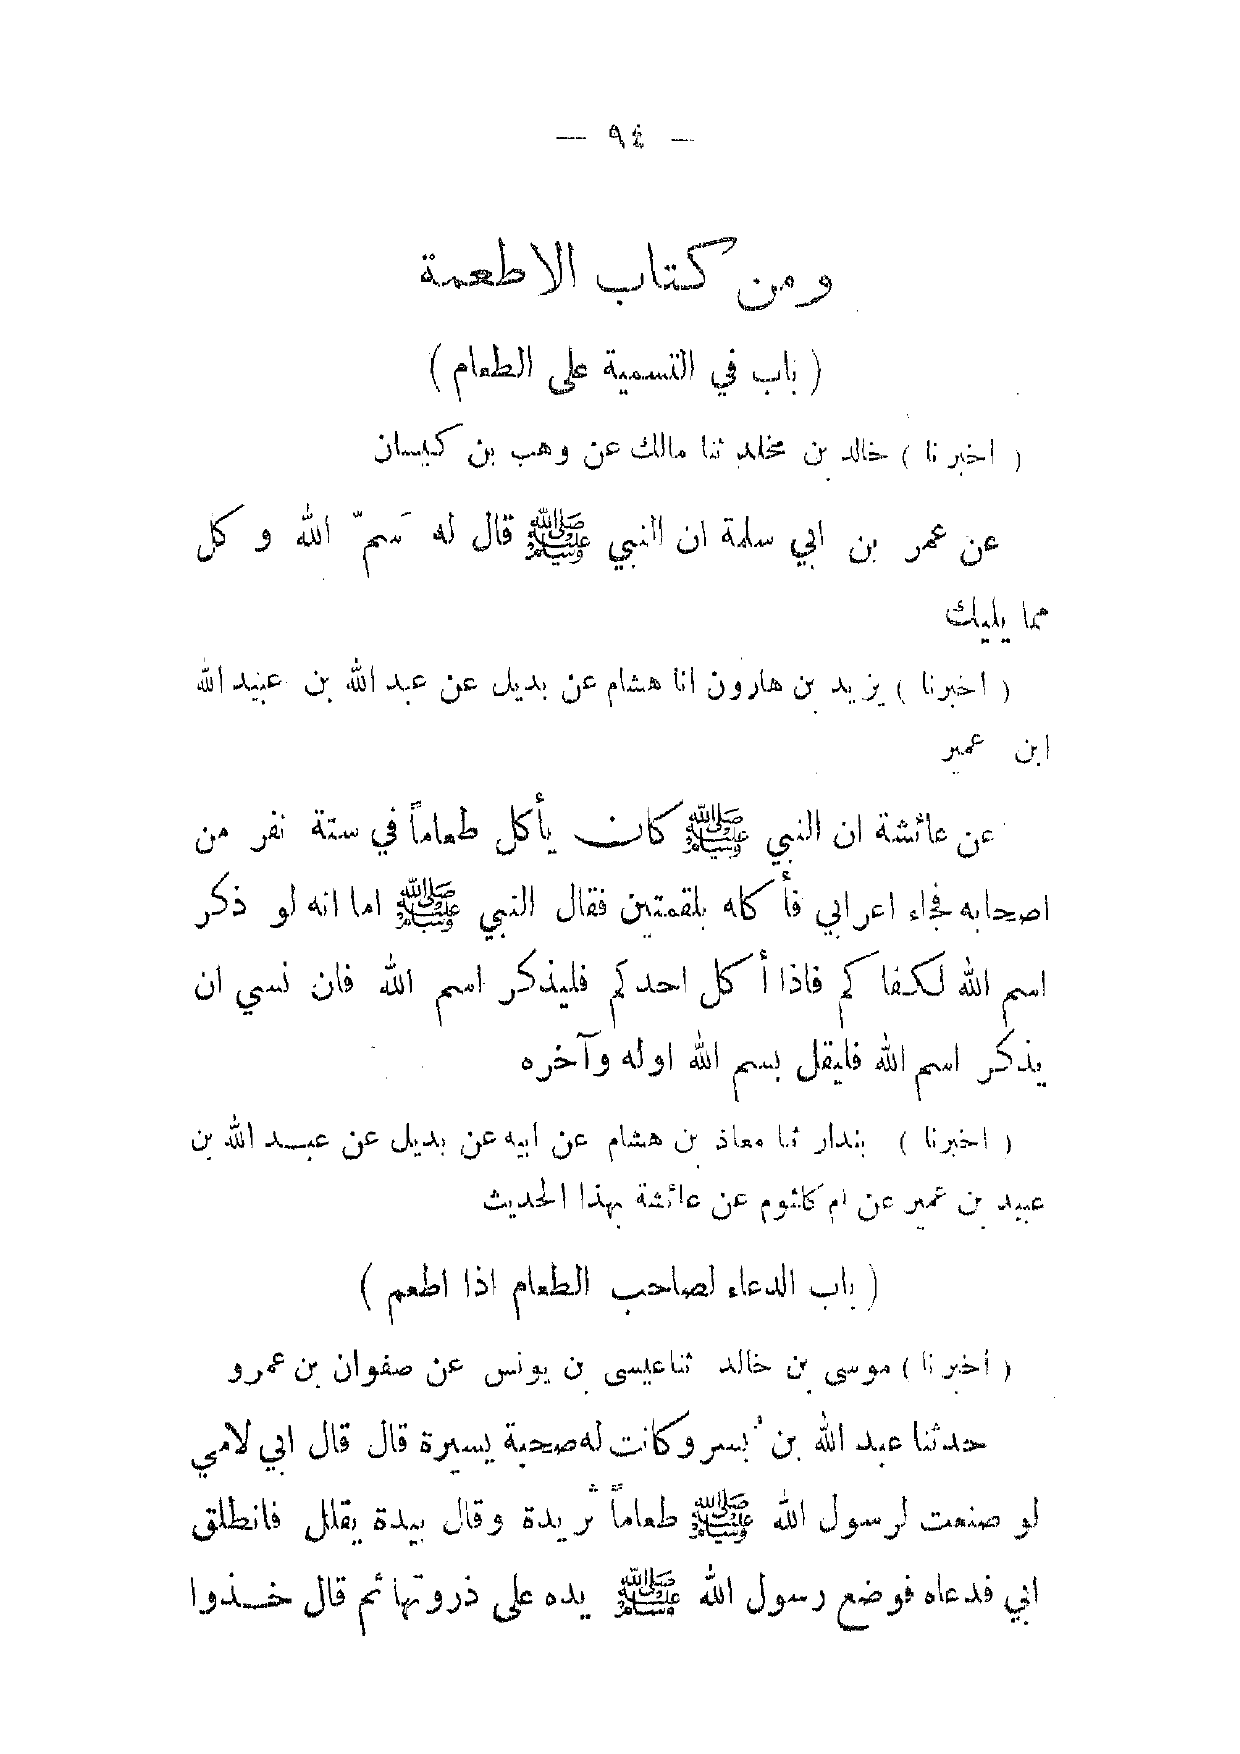 — ٩٤ —
ومن كتاب الاطعمة
( باب في التسمية على الطعام )
( اخبرنا ) خالد بن مخلد ثنا مالك عن وهب بن كيسان
عن عمر بن ابي سلمة ان النبي ﷺ قال له سَمِّ الله و كل
مما يليك
( اخبرنا ) يزيد بن هارون انا هشام عن بديل عن عبد الله بن عبيد الله
ابن عمير
عن عائشة ان النبي ﷺ كان يأكل طعاماً في ستة نفر من
اصحابه فجاء اعرابي فأكله بلقمتين فقال النبي ﷺ اما انه لو ذكر
اسم الله لكفاكم فاذا أكل احدكم فليذكر اسم الله فان نسي ان
يذكر اسم الله فليقل بسم الله اوله وآخره
( اخبرنا ) بندار ثنا معاذ بن هشام عن ابيه عن بديل عن عبد الله بن
عبيد بن عمير عن ام كلثوم عن عائشة بهذا الحديث
( باب الدعاء لصاحب الطعام اذا اطعم )
( أخبرنا ) موسى بن خالد ثنا عيسى بن يونس عن صفوان بن عمرو
حدثنا عبد الله بن بُسر وكانت له صحبة يسيرة قال قال ابي لامي
لو صنعت لرسول الله ﷺ طعاماً ثريدة وقال بيدة يقلل فانطلق
ابي فدعاه فوضع رسول الله ﷺ يده على ذروتها ثم قال خذوا